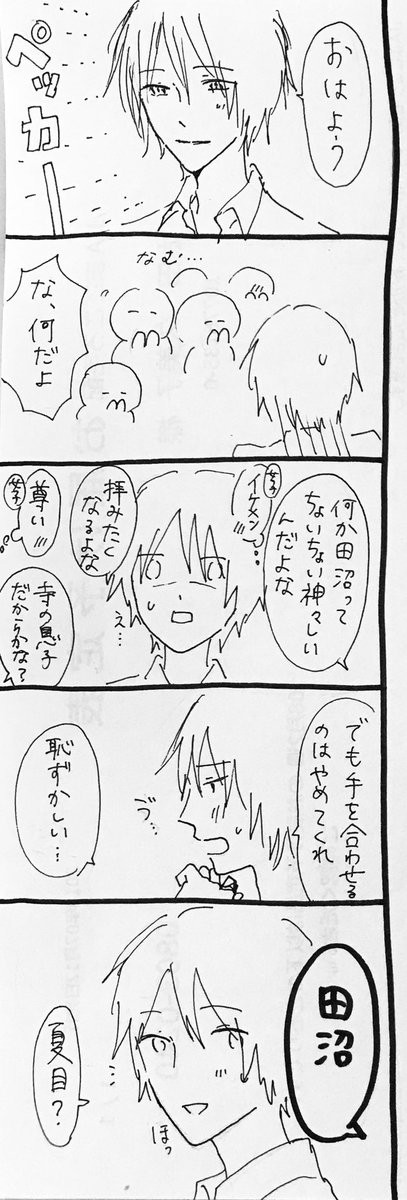 おはよう
ペッカー
なむ…
な、何だよ
何か田沼って
ちょいちょい神々しい
んだよな
女子
イケメン
拝みたく
なるよな
え…
女子
尊い
寺の息子
だからかな?
でも手を合わせる
のはやめてくれ
う゛…
恥ずかしい…
田沼
夏目?
ほっ